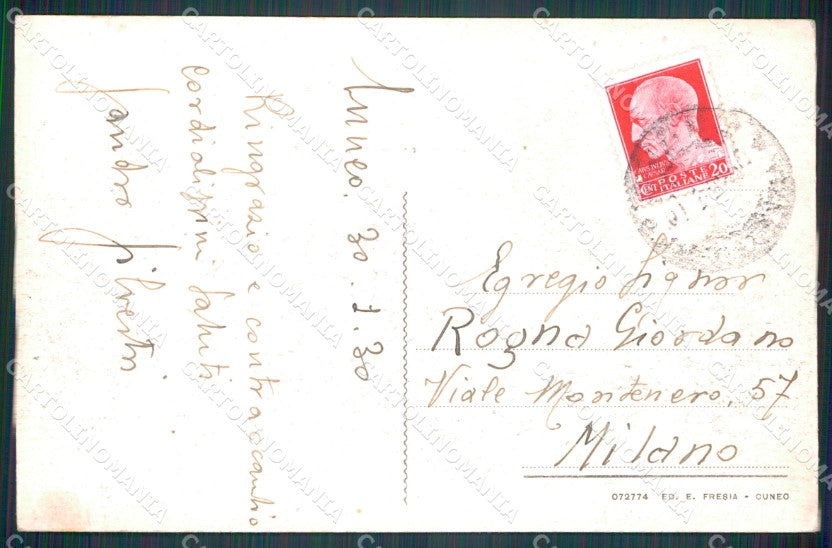 Cuneo. 30.1.30
Ringrazio e contraccambio
cordialissimi saluti
Sandro Silvestri
CAES
POSTE
CENT ITALIANE 20
Egregio Signor
Rogna Giordano
Viale Montenero, 57
Milano
072774 ED. E. FRESIA - CUNEO
CARTOLINOMANIA